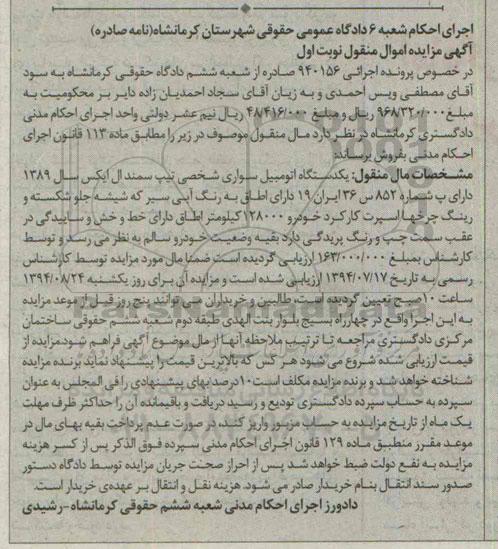 اجرای احکام شعبه ۶ دادگاه عمومی حقوقی شهرستان کرمانشاه(نامه صادره)
آگهی مزایده اموال منقول نوبت اول
در خصوص پرونده اجرائی ۹۴۰۱۵۶ صادره از شعبه ششم دادگاه حقوقی کرمانشاه به سود
آقای مصطفی ویس احمدی و به زیان آقای سجاد احمدیان زاده دایر بر محکومیت به
مبلغ ۹۶۸/۳۲۰/۰۰۰ ریال و مبلغ ۴۸/۴۱۶/۰۰۰ ریال نیم عشر دولتی واحد اجرای احکام مدنی
دادگستری کرمانشاه در نظر دارد مال منقول موصوف در زیر را مطابق ماده ۱۱۳ قانون اجرای
احکام مدنی بفروش برساند:
مشخصات مال منقول: یکدستگاه اتومبیل سواری شخصی تیپ سمند ال ایکس سال ۱۳۸۹
دارای پ شماره ۸۵۲ س ۳۶ ایران ۱۹ دارای اطاق به رنگ آبی سیر که شیشه جلو شکسته و
رینگ چرخها اسپرت کارکرد خودرو ۱۲۸۰۰۰ کیلومتر اطاق دارای خط و خش و ساییدگی در
عقب سمت چپ و رنگ پریدگی دارد بقیه وضعیت خودرو سالم به نظر می رسد و توسط
کارشناس بمبلغ ۱۶۳/۰۰۰/۰۰۰ ارزیابی گردیده است ضمنا مال مورد مزایده توسط کارشناس
رسمی به تاریخ ۱۳۹۴/۰۷/۱۷ ارزیابی شده است و مزایده آن برای روز یکشنبه ۱۳۹۴/۰۸/۲۴
ساعت ۱۰ صبح تعیین گردیده است، طالبین و خریداران می توانند پنج روز قبل از موعد مزایده
به این اجرا واقع در چهارراه بسیج بلوار بنت الهدی طبقه دوم شعبه ششم حقوقی ساختمان
مرکزی دادگستری مراجعه تا ترتیب ملاحظه آنها از مال موضوع آگهی فراهم شود.مزایده از
قیمت ارزیابی شده شروع می شود هر کس که بالاترین قیمت را پیشنهاد نماید برنده مزایده
شناخته خواهد شد و برنده مزایده مکلف است ۱۰درصد بهای پیشنهادی را فی المجلس به عنوان
سپرده به حساب سپرده دادگستری تودیع و رسید دریافت و باقیمانده آن را حداکثر ظرف مهلت
یک ماه از تاریخ مزایده به حساب مزبور واریز کنند، در صورت عدم پرداخت بقیه بهای مال در
موعد مقرر منطبق ماده ۱۲۹ قانون اجرای احکام مدنی سپرده فوق الذکر پس از کسر هزینه
مزایده به نفع دولت ضبط خواهد شد پس از احراز صحت جریان مزایده توسط دادگاه دستور
صدور سند انتقال بنام خریدار صادر می شود. هزینه نقل و انتقال بر عهده‌ی خریدار است.
دادورز اجرای احکام مدنی شعبه ششم حقوقی کرمانشاه -رشیدی